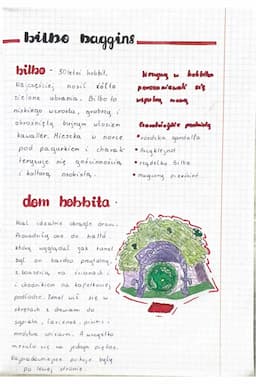 bilbo baggins
bilbo - 50letni hobbit.
Najczęściej nosił żółto
zielone ubrania. Bilbo to
niskiego wzrostu, grubszy i
obrośnięty bujnym włosiem
kawaler. Mieszka w norce
pod pagórkiem i charak
teryzuje się gościnnością
i kulturą osobistą.
Wszyscy w hobbita
porozumiewali się
wspólną mową
Charakterystyczne przedmioty
• różdżka gandalfa
• Arcyklejnot
• żądełko Bilba
• magiczny pierścień
dom hobbita.
Miał idealnie okrągłe drzwi.
Prowadziły one do hallu
który wyglądał jak tunel
był on bardzo przytulny,
z boazerią na ścianach i
i chodnikiem na kafelkowej
podłodze. Tunel wił się w
skrętach z drzwiami do
sypialni, łazienek, piwnic i
mnóstwa spiżarni. A wszystko
mieściło się na jednym piętrze.
Najładniejsze pokoje były
po lewej stronie.